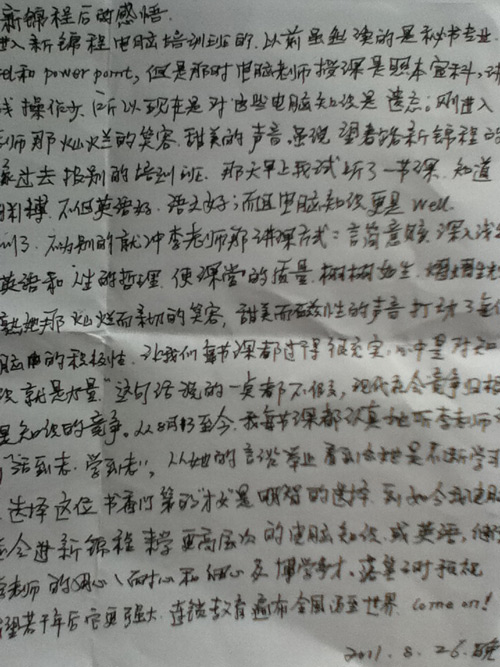 新锦程后的感悟.
进入新锦程电脑培训班的.以前虽然读的是秘书专业.
和power point,但是那时电脑老师授课是照本宣科.讲
操作少.所以现在是对这些电脑知识是遗忘;刚进入
师那灿烂的笑容.甜美的声音.虽说望着踏新锦程的
过去报别的培训班.那天早上我试听了一节课.知道
不但英语好.语文好;而且电脑知识更是well.
不为别的就冲李老师那讲课方式:言简意赅.深入浅
英语和人生的哲理.使课堂的质量.栩栩如生.
那灿烂而亲切的笑容,甜美而磁性的声音打动了每
的积极性.让我们每节课都过得很充实.心中是对知
就是力量"这句话说的一点都不假,现代社会竞争归根
是知识的竞争。从8月3至今.我每节课都认真地听李老师
"活到老.学到老",从她的言谈举止看到她是不断学习
选择这位书香门第的才女是明智的选择.到如今我电脑
会进新锦程来学更高层次的电脑知识.或英语,继
老师的用心、耐心和细心及博学多才.
望若干年后它更强大.连锁教育遍布全国乃至世界.come on!
2011.8.26.